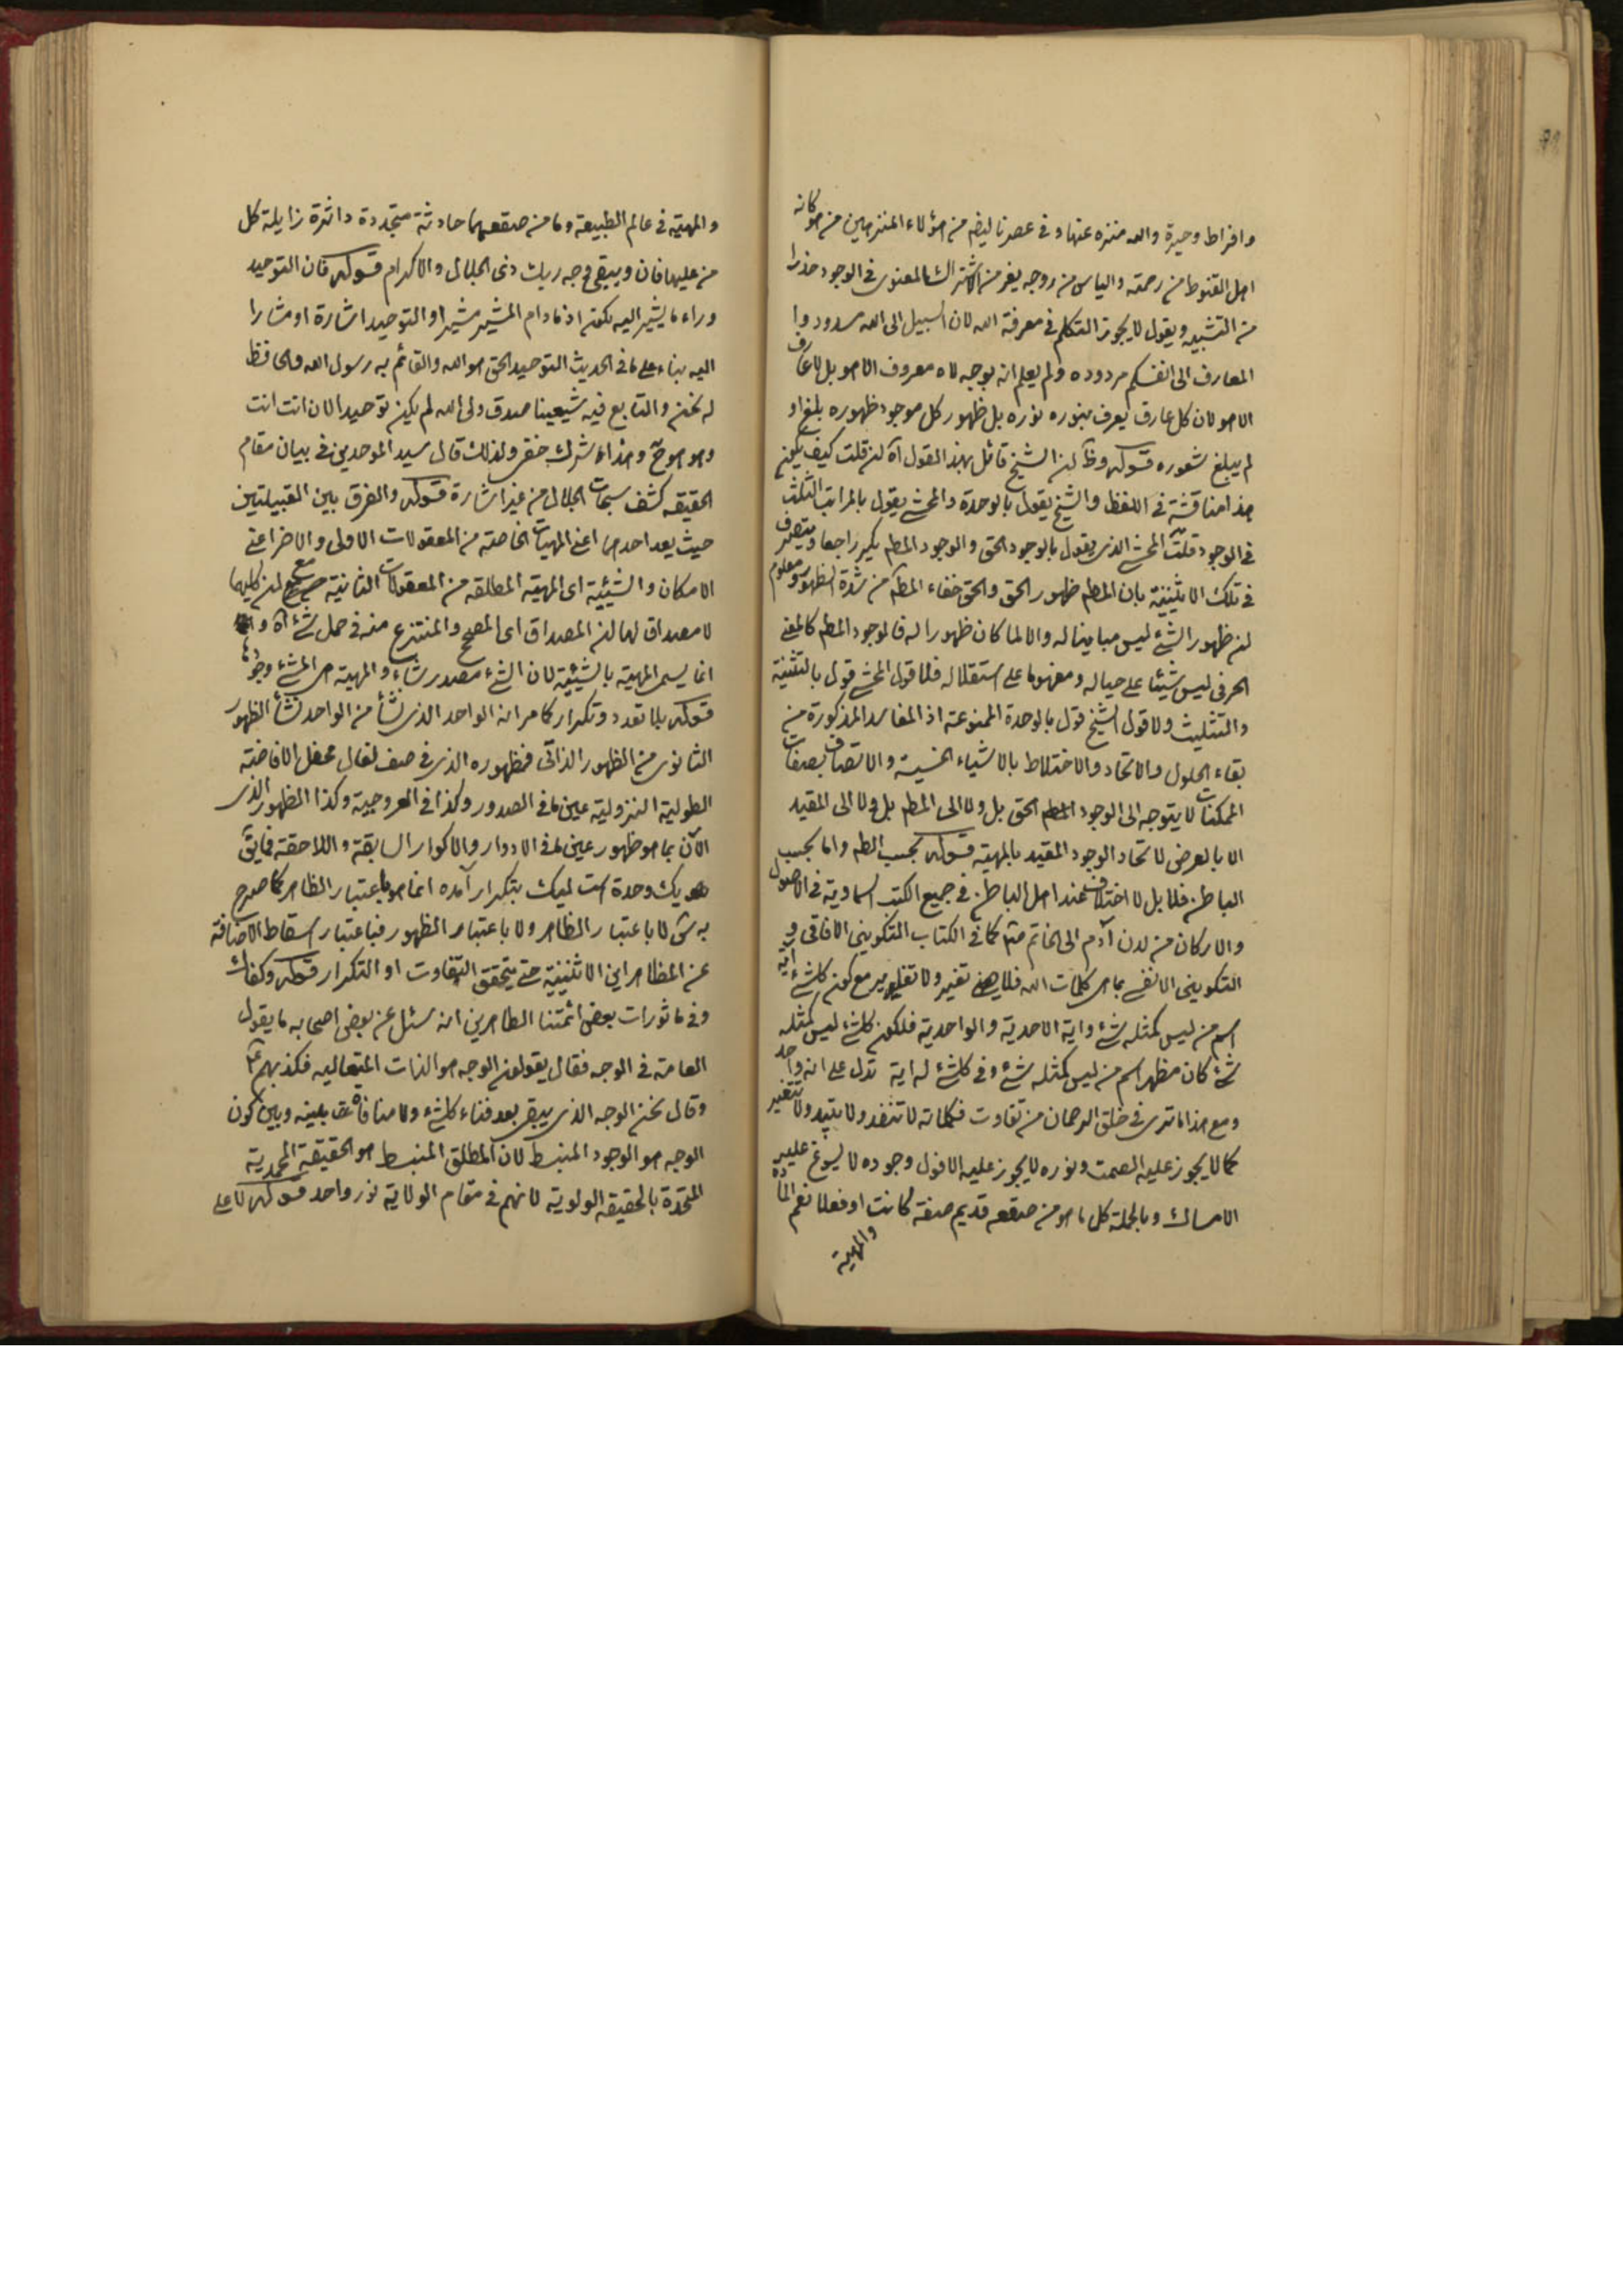 وافراط وحيرة والله منزه عنها وفى عصرنا ايضا من هؤلاء المنزهين من هو كانه
اهل القنوط من رحمته والياس من روحه يفر من الاشتراك المعنوى فى الوجود حذرا
من التشبيه ويقول لا يجوز التكلم فى معرفة الله لان السبيل الى الله مسدود وا
المعارف الى انفسكم مردودة ولم يعلم انه بوجه لا معروف الا هو بل لا عارف
الا هو لان كل عارف يعرف بنوره نوره بل ظهور كل موجود ظهوره بلغ او
لم يبلغ شعوره قوله وظ ان الشيخ قائل بهذا القول اه ان قلت كيف يكون
هذا مناقشة فى اللفظ والشيخ يقول بالوحدة والمحشى يقول بالمراتب الثلث
فى الوجود قلت المحشى الذى يقول بالوجود الحق والوجود المطلم يكر راجعا ويتصرف
فى تلك الاثنينية بان المطلم ظهور الحق والحق خفاء المطلم من شدة الظهور ومعلوم
ان ظهور الشئ ليس مباينا له والا لما كان ظهورا له فالوجود المطلم كالمعنى
الحرفى ليس شيئا على حياله ومفهوما على استقلاله فلا قول المحشى قول بالتثنية
والتثليث ولا قول الشيخ قول بالوحدة الممنوعة اذ المفاسد المذكورة من
بقاء الحلول والاتحاد والاختلاط بالاشياء الخسيسة والاتصاف بصفات
الممكنات لا يتوجه الى الوجود الحق بل ولا الى المطلم بل ولا الى المقيد
الا بالعرض لاتحاد الوجود المقيد بالمهية قوله بحسب الظم واما بحسب
الباطن فلا بل لا اختلاف عند اهل الباطن فى جميع الكتب السماوية فى الاصول
والاركان من لدن آدم الى الخاتم كما فى الكتاب التكوينى الافاقى و
التكوينى الانفسى بما هى كلمات الله فلا تغير ولا مع كون كل شئ آية
اسم من ليس كمثله شئ واية الاحدية والواحدية فلكون كل شئ ليس كمثله
شئ كان مظهر اسم من ليس كمثله شئ وفى كل شئ له اية تدل على انه واحد
ومع هذا ما ترى فى خلق الرحمان من تفاوت فكلماته لا تنفد ولا تبيد ولا تتغير
كما لا يجوز عليه الصمت ونوره لا يجوز عليه الافول وجوده لا يسوغ عليه
الامساك وبالجملة كل ما هو من صقعه قديم صفة كانت او فعلا نعم المادة
والمهية
والمهية فى عالم الطبيعة وما من صقعهما حادثة متجددة داثرة زايلة كل
من عليها فان ويبقى وجه ربك ذى الجلال والاكرام قوله فان التوحيد
وراء ما يشير اليه بكونه اذ ما دام المشير مشيرا والتوحيد اشارة او مشارا
اليه بناء على ما فى الحديث التوحيد الحق هو الله والقائم به رسول الله والحافظ
له نحن والتابع فيه شيعتنا صدق ولى الله لم يكن توحيدا لان انت انت
وهو هو ح وهذا شرك خفى ولذلك قال سيد الموحدين فى بيان مقام
الحقيقه كشف سبحات الجلال من غير اشارة قوله والفرق بين القبيلتين
حيث يعد احدهما اعنى المهيات الخاصة من المعقولات الاولى والاخر اعنى
الامكان والشيئية اى المهية المطلقه من المعقولات الثانية مع ان كليهما
لا مصداق لها ان المصداق اى المصحح والمنتزع منه فى حمل شئ اه و
انما يسمى المهية بالشيئية لان الشئ مصدر شاء والمهية هى المشئ وجوده
قوله بلا تعدد وتكرار كما مر انه الواحد الذى نشأ من الواحد نشأ الظهور
الثانوى من الظهور الذاتى فظهوره الذى فى صف نعال محفل الافاضة
الطولية النزولية عين ما فى الصدور وكذا فى العروجية وكذا الظهور الذى
الآن بما هو ظهور عين ما فى الادوار والاكوار السابقة واللاحقة فما يق
يك وحدة است ليك بتكرار آمده انما هو باعتبار الظاهر كما صرح
به لا باعتبار الظاهر ولا باعتبار الظهور فباعتبار اسقاط الاضافة
عن المظاهر اين الاثنينية حتى يتحقق التفاوت او التكرار قوله وكفاك
وفى ماثورات بعض ائمتنا الطاهرين انه سئل عن بعض اصحابه ما يقول
العامة فى الوجه فقال يقولون الوجه هو الذات المتعاليه فكذبهم ع
وقال نحن الوجه الذى يبقى بعد فناء كل شئ ولا منافاة بينه وبين كون
الوجه هو الوجود المنبسط لان المطلق المنبسط هو الحقيقة المحمدية
المتحدة بالحقيقه الولوية لانهم فى مقام الولاية نور واحد قوله لا على